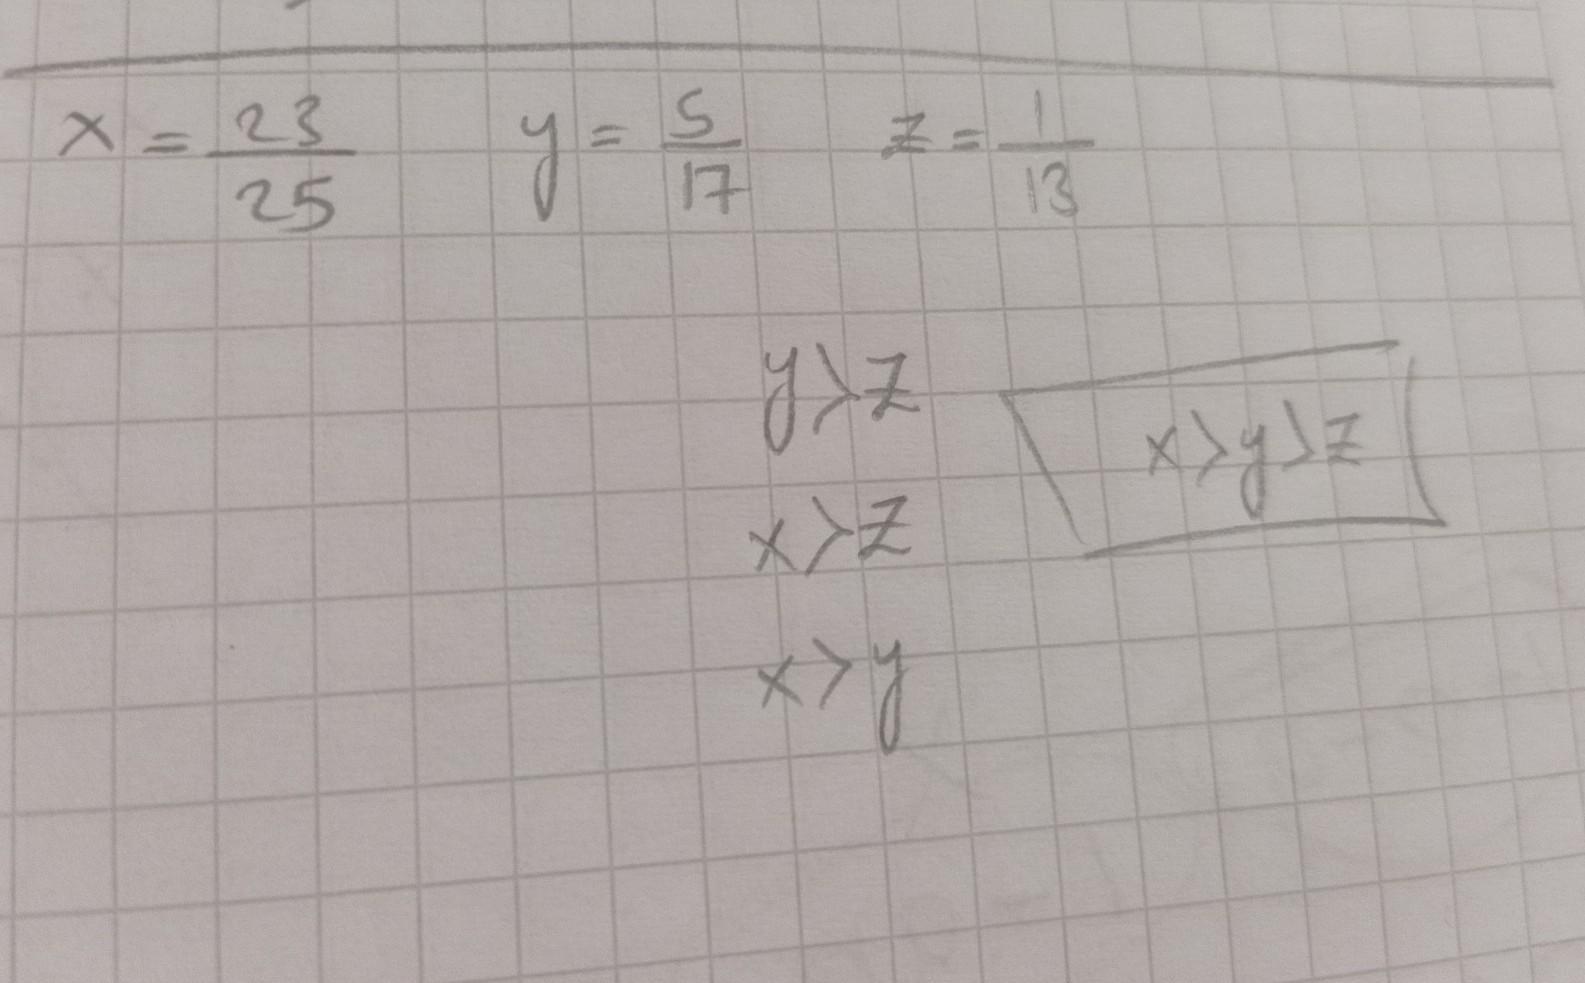 x = 23/25 y = 5/17 z = 1/13
y>z
x>y>z
x>z
x>y